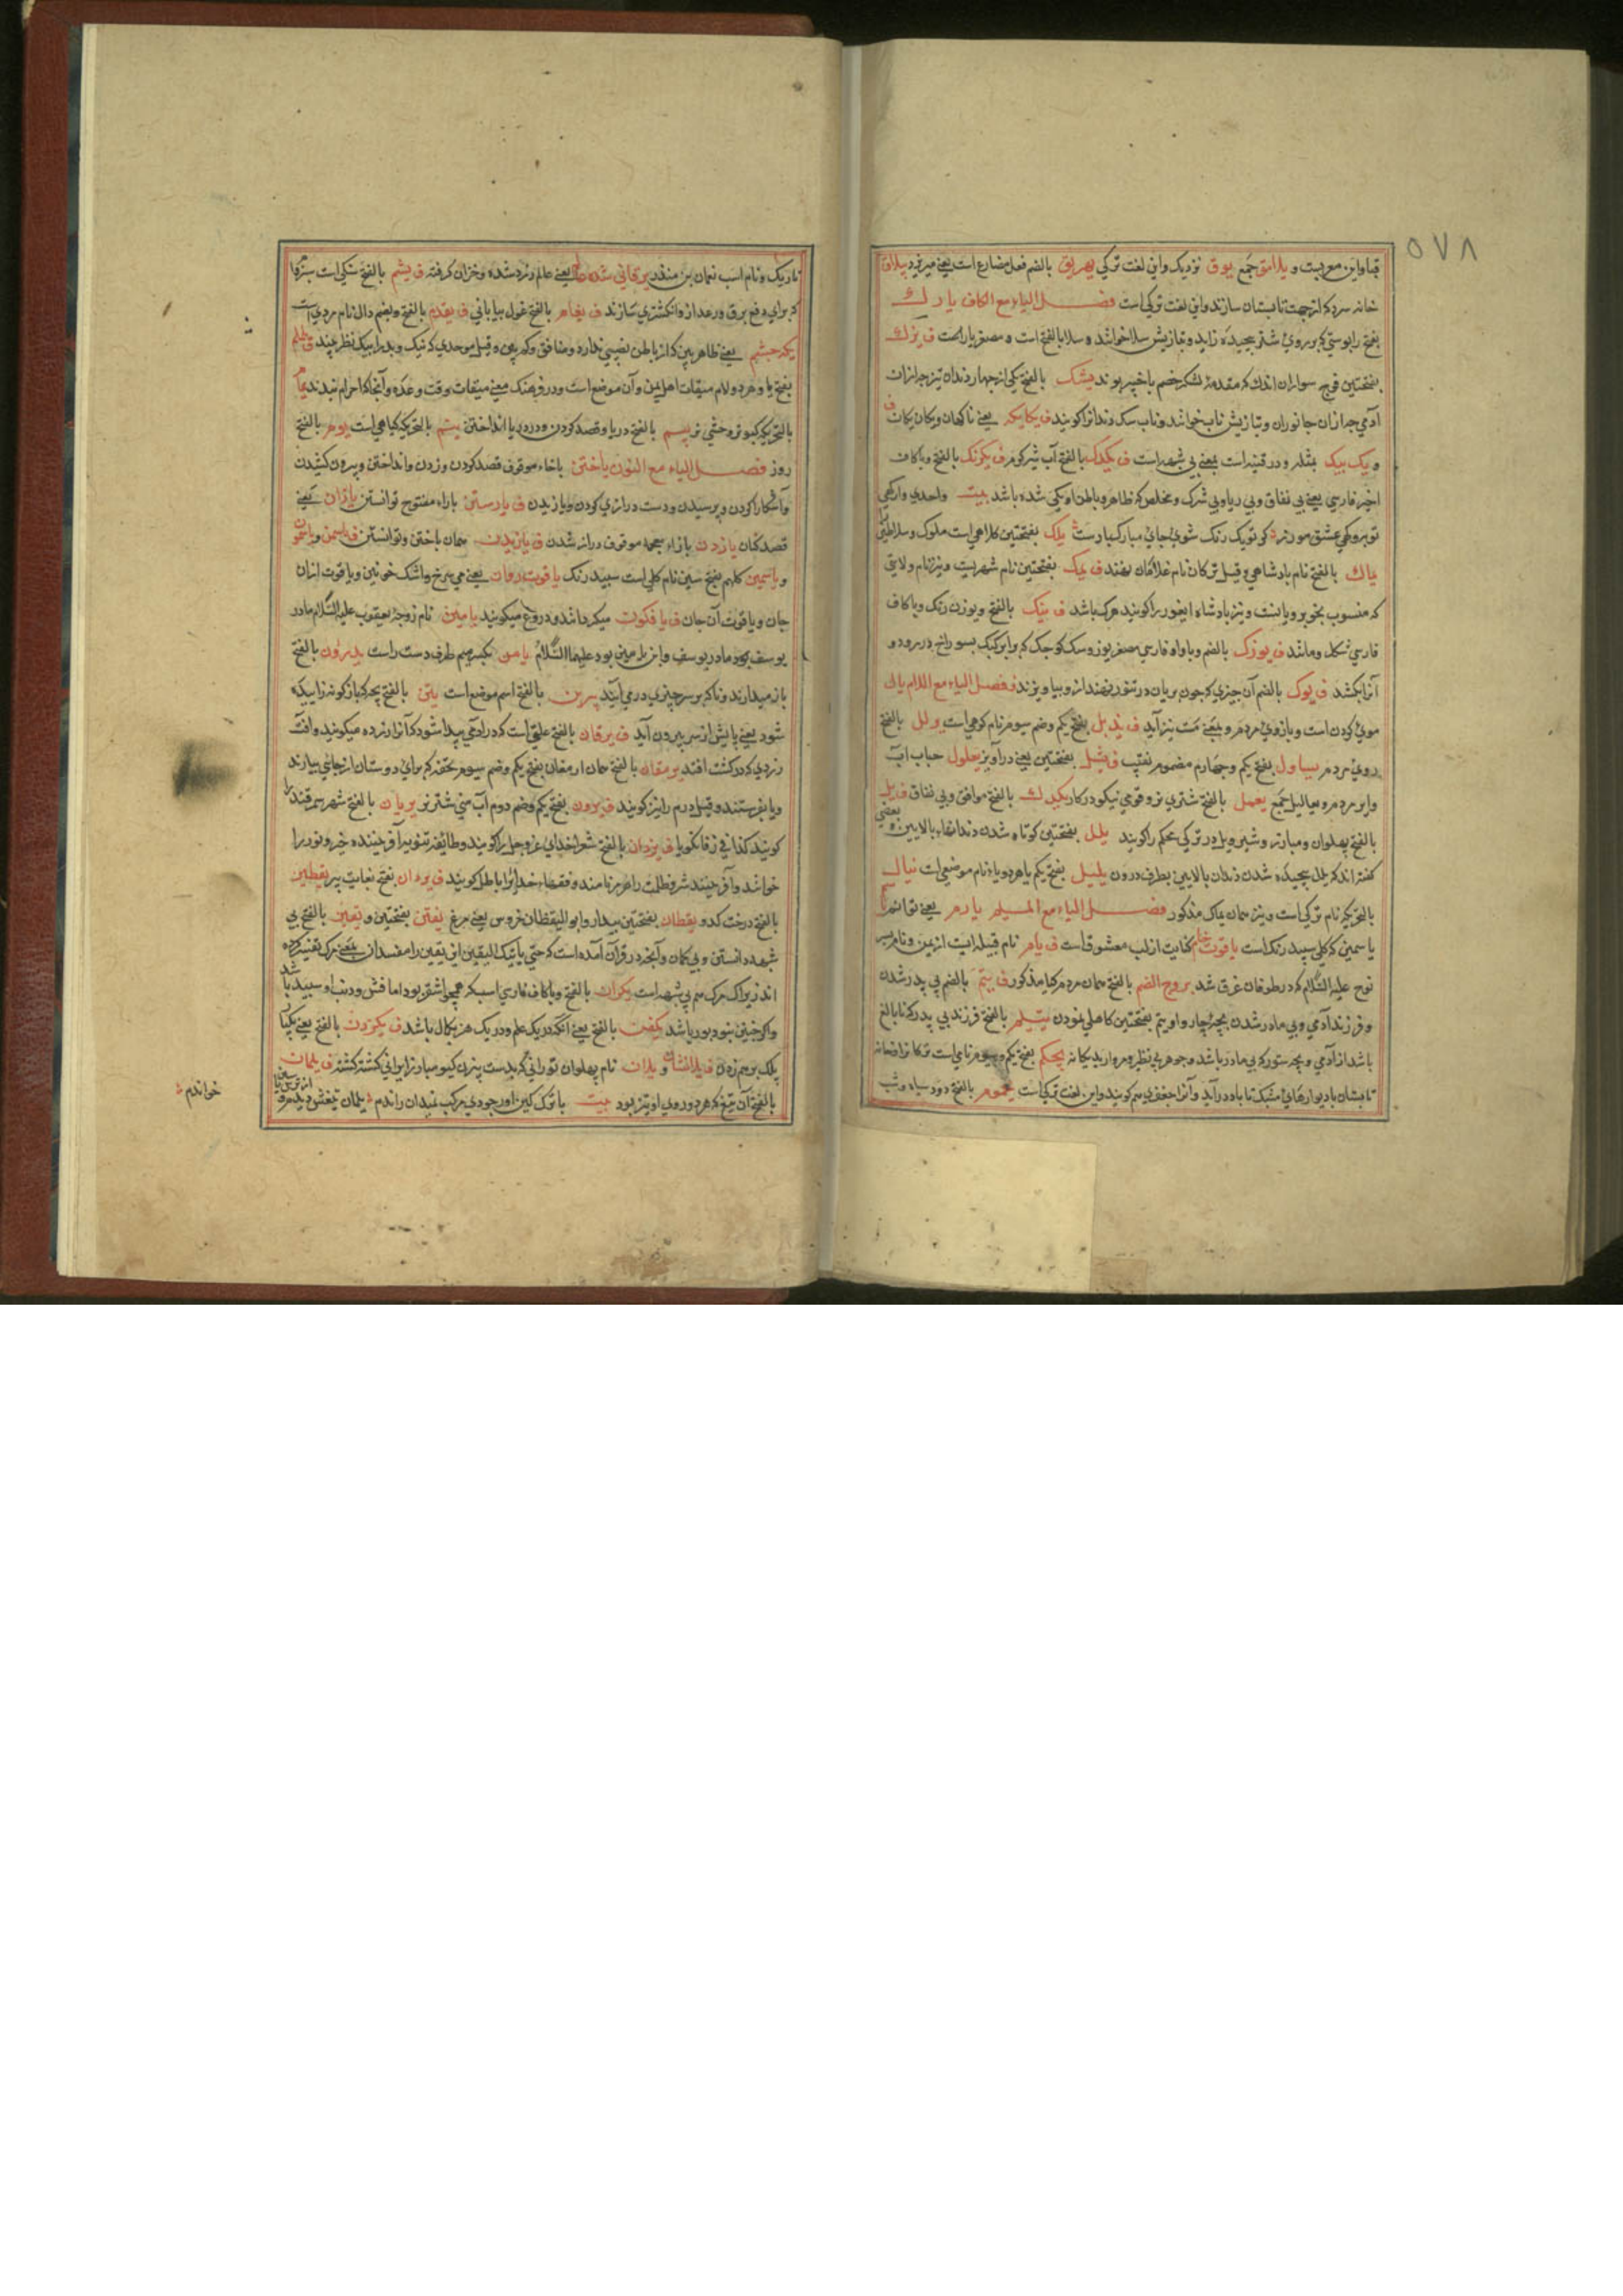 ۵۷۸
قبا و این معربست و یلامق جمع یوق نزدیک و این لغت ترکی یهریق بالضم فعل مضارع است یعنی میریزد ییلاق
خانه سرد که از جهت تابستان سازند و این لغت ترکی است فصل الیاء مع الکاف یارک
بفتح را پوستی که بر روی شتر بچیده زاید و بتازیش سلا خوانند و سلا بالفتح است و مصغر یار است ف یزک
بفتحتین فوج سواران اندک که مقدمه لشکر خصم باخبر بوند یشک بالفتح یکی از چهار دندان تیز جز از آن
آدمی جز از آن جانوران و بتازیش ناب خوانند و ناب سک دندانرا کویند ف یکایک یعنی ناکهان ویکان یکان
و یک بیک بمثله و در قنیه است بمعنی بی شبهه است ف یکدک بالفتح آب شیر کوم ف یکرنک بالفتح و با کاف
اخیر فارسی یعنی بی نفاق و بی ریا و بی شرک و مخلص که ظاهر و باطن او یکی شده باشد بیت
یلک بفتحتین کلاهی است ملوک و سلاطین را
یماک بالفتح نام پادشاهی و قیل ترکان نام غلامان نهند ف یمک بفتحتین نام شهریست و نیز نام ولایتی
که منسوب بخوبرویانست و نیز پادشاه ایغور را کویند هرکه باشد ف ینک بالفتح و بوزن رنک و با کاف
فارسی شکل و مانند ف یوزک بالضم و با واو فارسی مصغر یوز و سک کوجک که بوی کبک بسوراخ در رود و
آنرا بکشد ف یوک بالضم آن چیزی که چون بریان در تنور نهند از و بیاویزند فصل الیاء مع اللام یال
موی کردن است و بازوی مردم و بمعنی مت نیز آید ف یذبل بفتح یکم و ضم سیوم نام کوهی است ویلل بالفتح
روی مردم یساول بفتح یکم و چهارم مضموم نقیب ف یشل بفتحتین یعنی درآویز یعلول حباب آب
و ابر مردم و یعالیل جمع یعمل بالفتح شتری نر و قوی نیکو در کار یکدل بالفتح موافق و بی نفاق ف یل
بالفتح پهلوان و مبارز و شیر و یل در ترکی محکم را کویند یلل بفتحتین کوتاه شدن دندانهاء بالایین و بعضی
کفته اند که یلل بچیده شدن دندان بالایین بطرف درون یلیل بفتح یکم با هر دو یاء نام موضعی است ینال
بالتحریک نام ترکی است و نیز همان یماک مذکور فصل الیاء مع المیم یارم یعنی توانم
یاسمین که کلی سپید رنک است یاقوت خام کنایت از لب معشوق است ف یام نام قبیله ایست از یمن و نام پسر
نوح علیه السلام که در طوفان غرق شد یبروح الصنم بالفتح همان مردم کیا مذکور ف یتم بالضم بی پدر شدن
و فرزند آدمی و بی مادر شدن بچهٔ چاروا و یتم بفتحتین کاهلی نمودن یتیم بالفتح فرزند بی پدر که نابالغ
باشد از آدمی و بچه ستور که بی مادر باشد و جوهر بی نظیر و مروارید یکانه یحکم بفتح یکم و سیوم نامی است ترکانرا و خانه
تابستان با دیوارهای مشبک تا باد درآید و آنرا جعفری هم کویند و این لغت ترکی است یحموم بالفتح دود سیاه و شب
تاریک و نام اسب نعمان بن منذر یرقانی شده یعنی عالم زرد شده و خزان کرفته ف یشم بالفتح سنکی است سبزفام
که برای دفع برق و رعد ازو انکشتری سازند ف یغام بالفتح غول بیابانی ف یقدم بالفتح و بضم دال نام مردی است
یکچشم یعنی ظاهربین که از باطن نصیبی ندارد و منافق و کم بین و قیل موحدی که نیک و بد را بیک نظر بیند ف یلملم
بفتح یا و هر دو لام میقات اهل یمن و آن موضع است و در فرهنک یعنی میقات وقت وعده و آنجا که احرام بندند یمام
بالتحریک کبوتر وحشی نر ییم بالفتح دریا و قصد کردن و در دریا انداختن ینم بالتحریک کیاهی است یوم بالفتح
روز فصل الیاء مع النون یاختن باخاء موقوف قصد کردن و زدن و انداختن و بیرون کشیدن
و آشکارا کردن و پرسیدن و دست درازی کردن و یازیدن ف یارستن باراء مفتوح توانستن یازان یعنی
قصد کنان یازدن بازاء معجمه موقوف دراز شدن ف یازیدن همان یاختن و توانستن ف یاسمن و یاسمون
و یاسمین کلهم بفتح سین نام کلی است سپید رنک یاقوت روان یعنی می سرخ و اشک خونین و یاقوت ازان
جان و یاقوت آن جان میکردانند و دروغ میکویند یامین نام زوجهٔ یعقوب علیه السلام مادر
یوسف بود مادر یوسف و ابن یامین بود علیهما السلام یامن بکسر میم طرف دست راست بدرون بالفتح
باز میدارند و ناکه بر سر چیزی در می آیند یبرین بالفتح اسم موضع است یتن بالفتح بچه که بازکونه زاید یعنی
شود یعنی پایش از سر بیرون آید ف یرقان بالفتح علتی است که در آدمی پیدا شود که آنرا زرده میکویند و آفت
زردی که در کشت افتد یرمقان بالفتح همان ارمغان بفتح یکم و ضم سیوم تحفه که برای دوستان از جائی بیارند
و یا بفرستند و قیل درم را نیز کویند ف یرون بفتح یکم و ضم دوم آب منی شتر نر یریان بالفتح شهر سمرقند را
کویند کذا فی زفانکویا ف یزدان بالفتح شعرا خدای عز و جل را کویند و طائفهٔ ثنویه آفریننده خیر و نور را
خوانند و آفریننده شر و ظلمت را اهرمن نامند و فقهاء خدا را باطل کویند ف یزدان بفتح بغایت پیر یقطین
بالفتح درخت کدو یقظان بفتحتین بیدار و ابو الیقظان خروس یعنی مرغ یفن بفتحتین و یقین بالفتح بی
شبهه دانستن و بی کمان و آنچه در قرآن آمده است که حتی یأتیک الیقین این یقین را مفسران بمعنی مرک تفسیر کرده
اند زیراک مرک هم بی شبهه است یکران بالفتح و با کاف فارسی اسبی که همچو اشقر بود اما فش و دنب او سپید باشد
و اکر چنین نبود بور باشد یکفن بالفتح یعنی آنکه در یک علم و در یک هنر بکمال باشد ف یکزدن بالفتح یعنی یکبار
پلک برهم زدن ف یلانشان و یلان نام پهلوان تورانی که بدست بیژن کیو مبارز ایرانی کشته کشته ف یلمان
بالفتح آن تیغ که هر دو روی او تیز بود بیت
خواندم